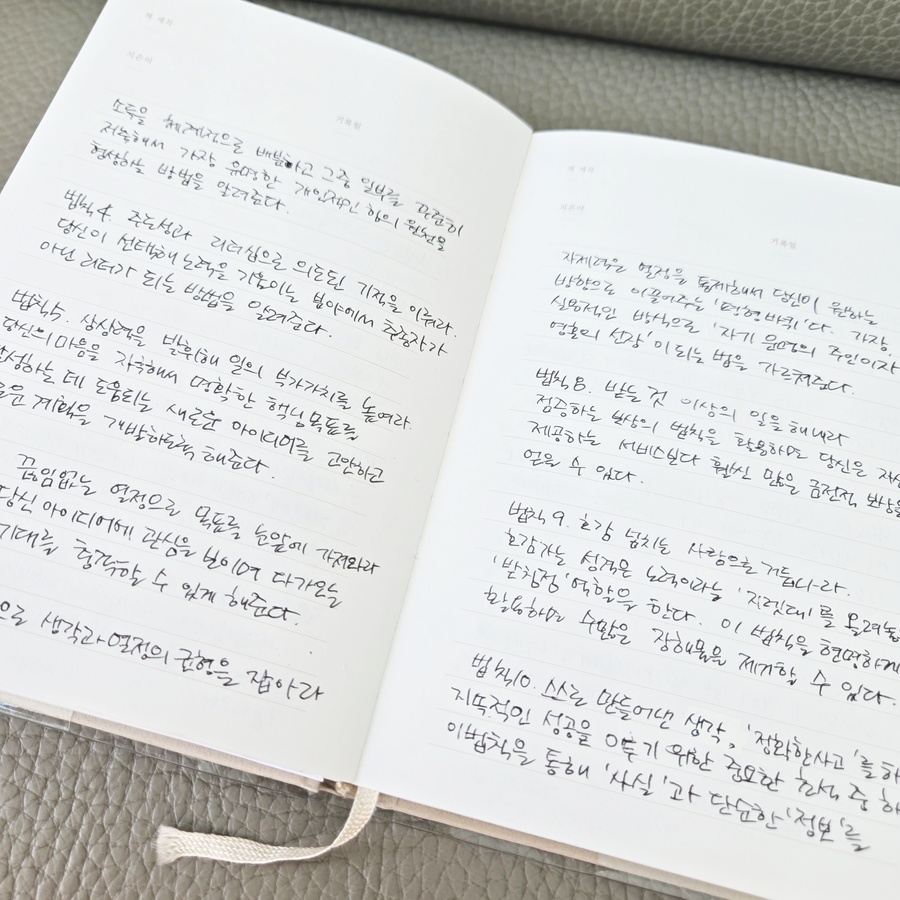 책 제목
지은이
기록일
소득을 체계적으로 배분하고 그중 일부를 꾸준히
저축해서 가장 유명한 개인적인 힘의 원천을
형상하는 방법을 알려준다.
법칙 4. 주도성과 리더십으로 의도된 기적을 이뤄라.
당신이 선택해 노력을 기울이는 분야에서 추종자가
아닌 리더가 되는 방법을 알려준다.
법칙 5. 상상력을 발휘해 일의 부가가치를 높여라.
당신의 마음을 자극해서 명확한 핵심 목표를
달성하는 데 도움되는 새로운 아이디어를 고안하고
계획을 개발하도록 해준다.
끊임없는 열정으로 목표를 눈앞에 가져와라
당신 아이디어에 관심을 보이며 다가오는
기대를 침착할 수 있게 해준다.
으로 생각과 열정의 균형을 잡아라
책 제목
지은이
기록일
자제력은 열정을 통제해서 당신이 원하는
방향으로 이끌어주는 '평형바퀴'다. 가장
실용적인 방식으로 '자기 운명의 주인이자
영혼의 선장'이 되는 법을 가르쳐준다.
법칙 8. 받는 것 이상의 일을 해내라
점증하는 보상의 법칙을 활용하면 당신은
제공하는 서비스보다 훨씬 많은 금전적 보상을
얻을 수 있다.
법칙 9. 호감 넘치는 사람으로 거듭나라.
호감가는 성격은 노력이라는 '지렛대'를 올려놓
'받침점' 역할을 한다. 이 법칙을 현명하게
활용하면 수많은 장해물을 제거할 수 있다.
법칙 10. 스스로 만들어낸 생각, '정확한 사고'를 하
지속적인 성공을 이루기 위한 중요한 초석 중 하
이 법칙을 통해 '사실'과 단순한 '정보'를